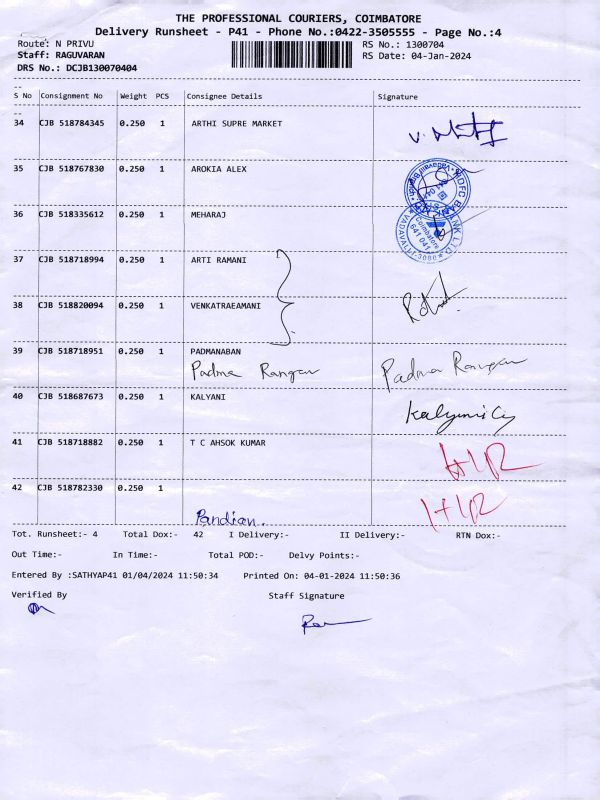 THE PROFESSIONAL COURIERS, COIMBATORE
Delivery Runsheet - P41 - Phone No.:0422-3505555 - Page No.:4
Route: N PRIVU RS No.: 1300704
Staff: RAGUVARAN RS Date: 04-Jan-2024
DRS No.: DCJB130070404
S No Consignment No Weight PCS Consignee Details Signature
34 CJB 518784345 0.250 1 ARTHI SUPRE MARKET
35 CJB 518767830 0.250 1 AROKIA ALEX
36 CJB 518335612 0.250 1 MEHARAJ
HDFC BANK LTD
Coimbatore
641 041
37 CJB 518718994 0.250 1 ARTI RAMANI
38 CJB 518820094 0.250 1 VENKATRAEAMANI
39 CJB 518718951 0.250 1 PADMANABAN
Padma Rangan Padma Rangan
40 CJB 518687673 0.250 1 KALYANI
41 CJB 518718882 0.250 1 T C AHSOK KUMAR
42 CJB 518782330 0.250 1
Pandian.
Tot. Runsheet:- 4 Total Dox:- 42 I Delivery:- II Delivery:- RTN Dox:-
Out Time:- In Time:- Total POD:- Delvy Points:-
Entered By :SATHYAP41 01/04/2024 11:50:34 Printed On: 04-01-2024 11:50:36
Verified By Staff Signature